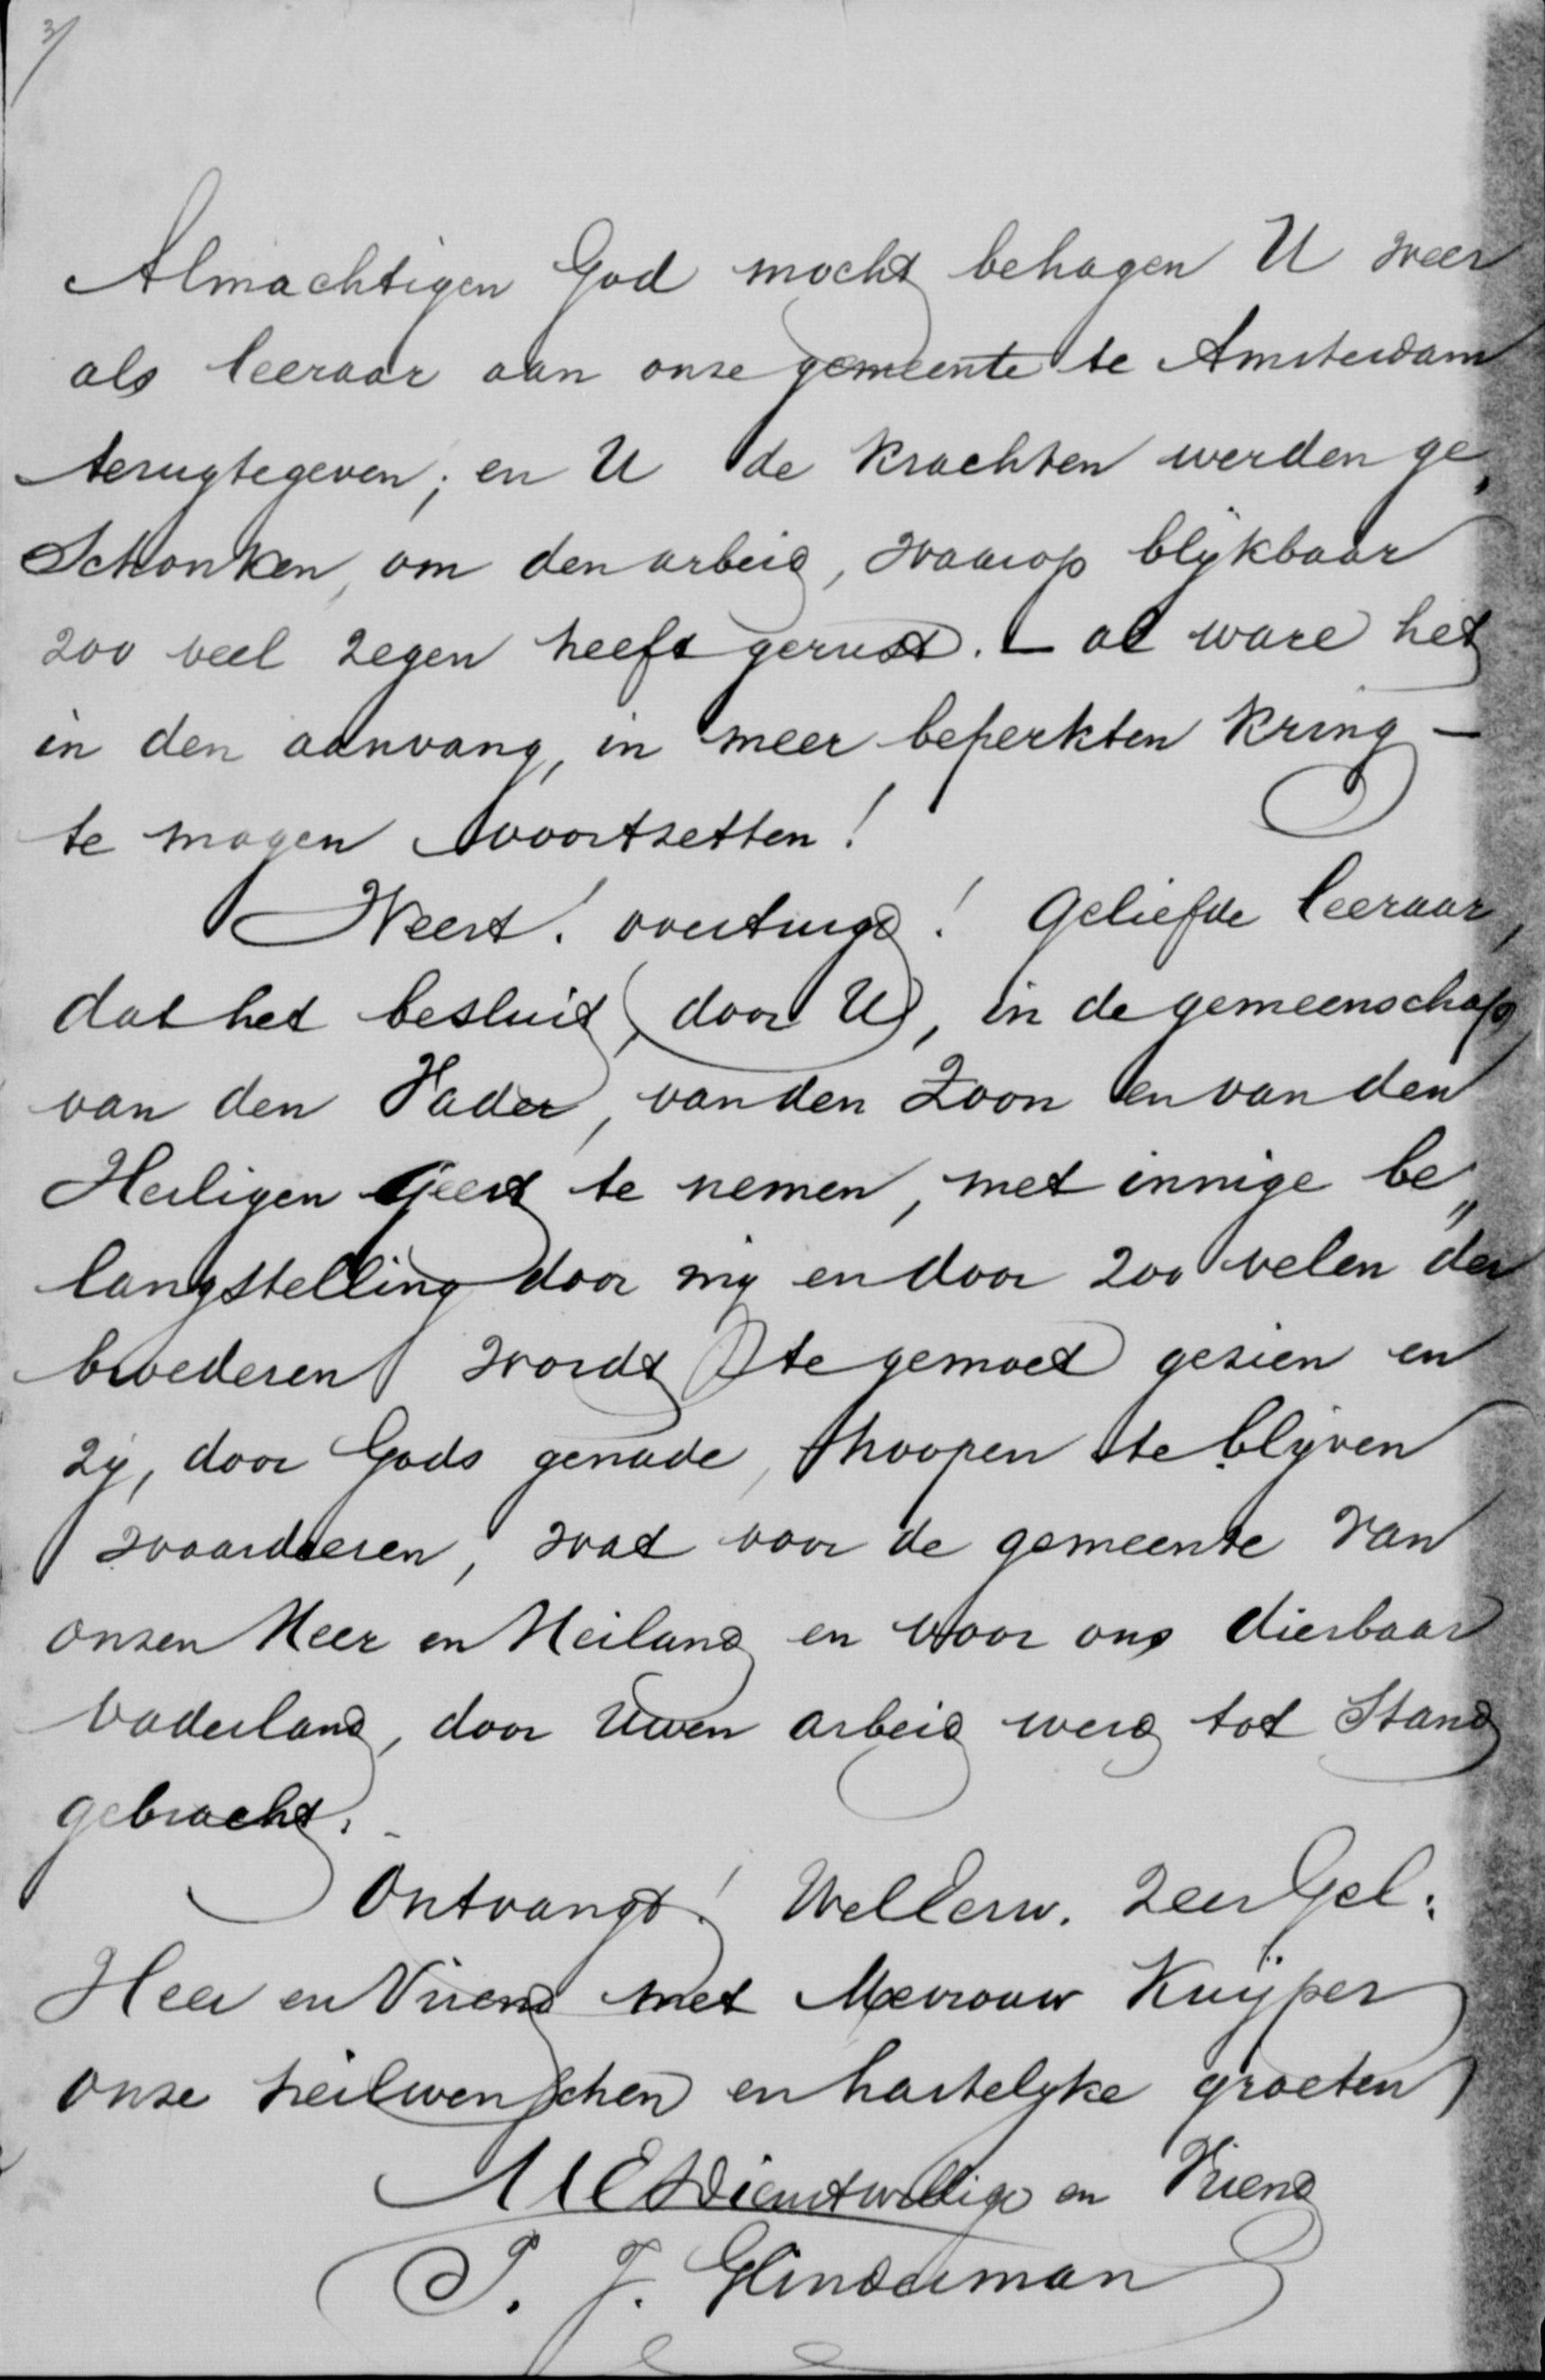 3/
Almachtigen God mocht behagen U weer
als leeraar aan onze gemeente te Amsterdam
terugtegeven; en U de krachten werden ge„
Schonken, om den arbeid, waarop blijkbaar
zoo veel zegen heeft gerust. – al ware het
in den aanvang, in meer beperkten kring –
te mogen voortzetten!
Weest! overtuigd! Geliefde leeraar,
dat het besluit, door U, in de gemeenschap
van den Vader, van den Zoon en van den
Heiligen Geest te nemen, met innige be„
langstelling door mij en door zoo velen der
broederen wordt te gemoet gezien en
zij, door Gods genade, hoopen te blijven
waardeeren, wat voor de gemeente van
onzen Heer en Heiland en voor ons dierbaar
vaderland, door Uwen arbeid werd tot Stand
gebracht. –
Ontvangt! WelEerw. Zeer Gel:
Heer en Vriend met Mevrouw Kuÿper
onze heilwenschen en hartelijke groeten
UEDienstwillige en Vriend
P. J. Glinderman